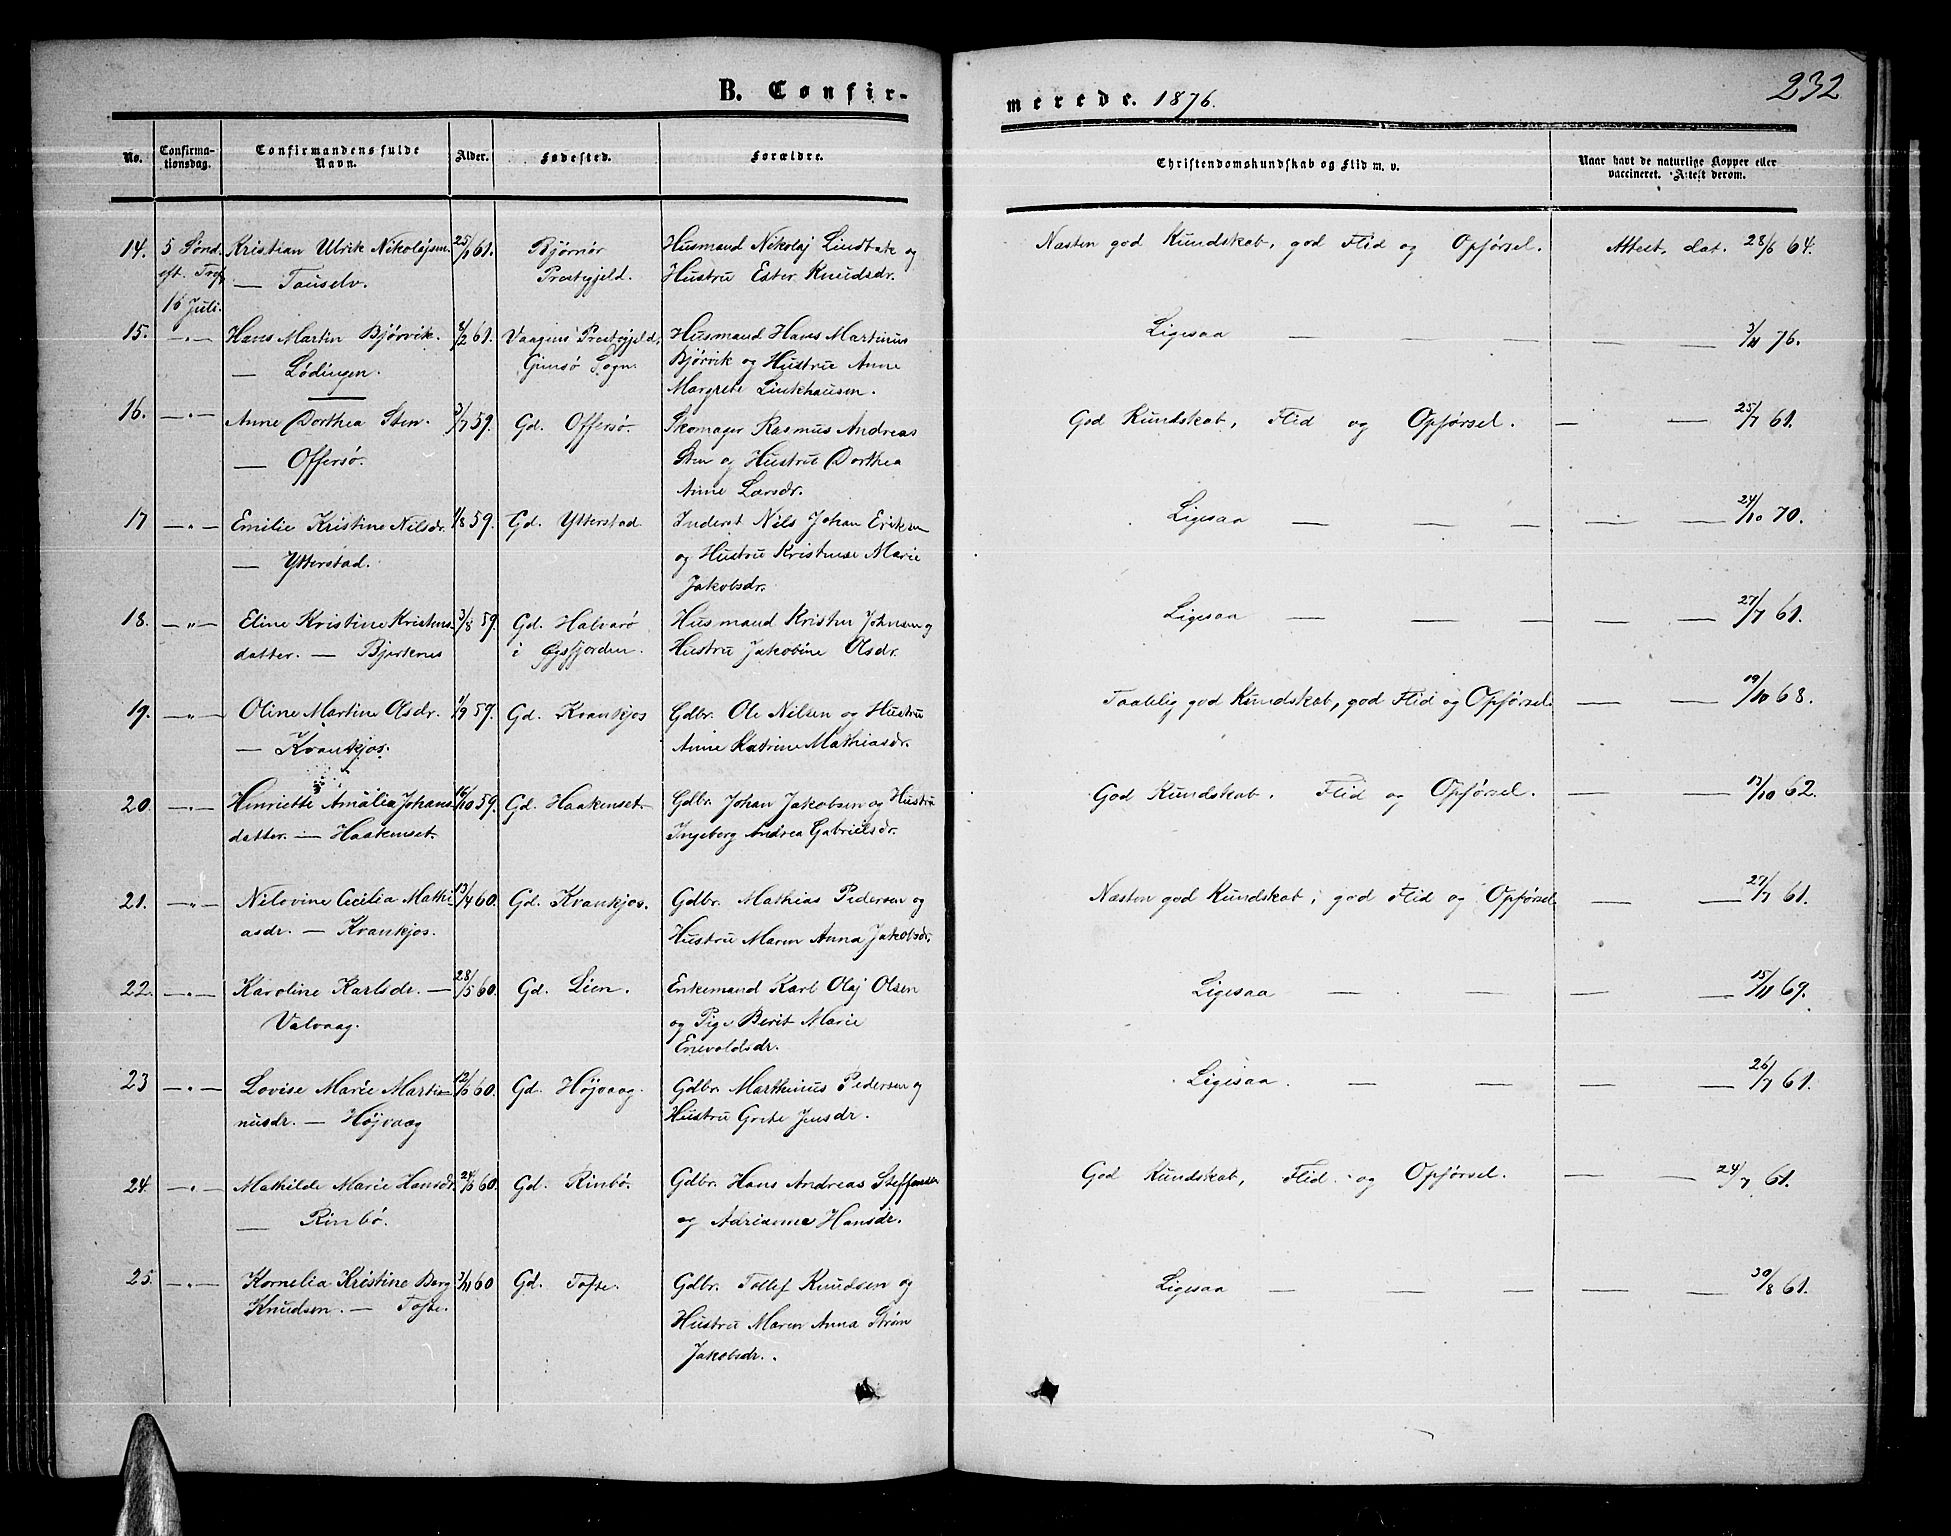 B. Confir-
merede. 1876.
232
No.
Confirma-
tionsdag.
Confirmandens fulde
Navn.
Alder.
Fødested.
Forældre.
Christendomskundskab og Flid m. v.
Naar havt de naturlige Kopper eller
vaccineret. Attest derom.
14. 5 Sønd. Kristian Ulrik Nikolajsen 25/1 61. Bjørnør Husmand Nikolaj Lindbak og Næsten god Kundskab, god Flid og Opførsel. Attest, dat. 28/6 64.
eft. Tref. — Prestegjeld. Hustru Ester Knudsdr.
16 Juli.
15. —„— Hans Martin Bjørvik. 8/2 61. Vaagens Prestegjeld, Husmand Hans Martinus Ligesaa — — — — — 3/11 76.
— Lødingen. Gimsø Sogn. Bjørvik og Hustru Anne
Margrete Linkhausen.
16. —„— Anne Dorthea Sten. 3/7 59. Gd. Offersø. Skomager Rasmus Andreas God Kundskab, Flid og Opførsel. — — 25/7 61.
— Offersø. Sten og Hustru Dorthea
Anne Larsdr.
17 —„— Emilie Kristine Nilsdr. 1/8 59. Gd. Ytterstad Inderst Nils Johan Eriksen Ligesaa — — — — — 24/10 70.
— Ytterstad. og Hustru Kristense Marie
Jakobsdr.
18. —„— Eline Kristine Kristens- 3/8 59. Gd. Halvarø Husmand Kristen Johnsen og Ligesaa — — — — — 27/7 61.
datter. — Bjerknes i Øgsfjorden. Hustru Jakobine Olsdr.
19. —„— Oline Martine Olsdr. 1/9 59. Gd. Kvankjos Gdbr. Ole Nilsen og Hustru Taalelig god Kundskab, god Flid og Opførsel. — — 19/10 68.
— Kvankjos. Anne Katrine Mathiasdr.
20. —„— Henriette Amalia Johans 16/10 59. Gd. Haakenset Gdbr. Johan Jakobsen og Hustru God Kundskab. Flid og Opførsel. — — 13/10 62.
datter. — Haakenset. Ingeborg Andrea Gabrielsdr.
21. —„— Nilovine Cecilia Mathi- 13/4 60. Gd. Kvankjos. Gdbr. Mathias Pedersen og Næsten god Kundskab, god Flid og Opførsel — — 27/7 61.
asdr. — Kvankjos. Hustru Maren Anna Jakobsdr.
22. —„— Karoline Karlsdr. — 28/5 60. Gd. Lien. Enkemand Karl Olaj Olsen Ligesaa — — — — — 15/11 69.
Valvaag. og Pige Berit Marie
Enevoldsdr.
23 —„— Lovise Marie Marti- 12/6 60. Gd. Højvaag. Gdbr. Marthinus Pedersen og Ligesaa. — — — — — 26/7 61.
nusdr. — Højvaag Hustru Grete Jensdr.
24. —„— Mathilde Marie Hansdr. 24/6 60. Gd. Rinbø. Gdbr. Hans Andreas Steffensen God Kundskab, Flid og Opførsel. — — 24/7 61.
— Rinbø. og Adrianna Hansdr.
25. —„— Kornelia Kristine Berg 3/11 60 Gd. Tofte. Gdbr. Tollef Knudsen og Ligesaa — — — — — 30/8 61.
Knudsen. — Tofte. Hustru Maren Anna Strøm
Jakobsdr.